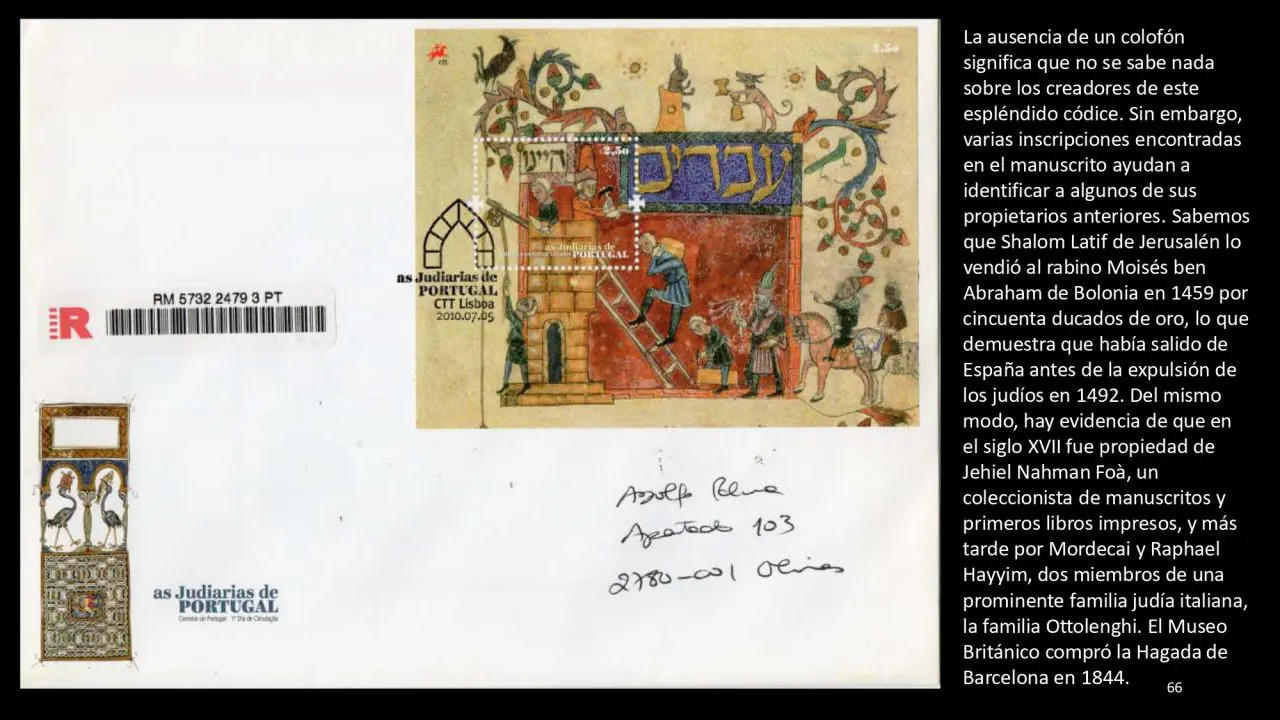 2,50
ctt
היינו
2,50
עבדים
as Judiarias de
PORTUGAL
as Judiarias de
PORTUGAL
CTT Lisboa
2010.07.05
RM 5732 2479 3 PT
R
Adolfo
Apartado 103
2780-001 Oeiras
as Judiarias de
PORTUGAL
Correios de Portugal 1º Dia de Circulação
La ausencia de un colofón
significa que no se sabe nada
sobre los creadores de este
espléndido códice. Sin embargo,
varias inscripciones encontradas
en el manuscrito ayudan a
identificar a algunos de sus
propietarios anteriores. Sabemos
que Shalom Latif de Jerusalén lo
vendió al rabino Moisés ben
Abraham de Bolonia en 1459 por
cincuenta ducados de oro, lo que
demuestra que había salido de
España antes de la expulsión de
los judíos en 1492. Del mismo
modo, hay evidencia de que en
el siglo XVII fue propiedad de
Jehiel Nahman Foà, un
coleccionista de manuscritos y
primeros libros impresos, y más
tarde por Mordecai y Raphael
Hayyim, dos miembros de una
prominente familia judía italiana,
la familia Ottolenghi. El Museo
Británico compró la Hagada de
Barcelona en 1844.
66